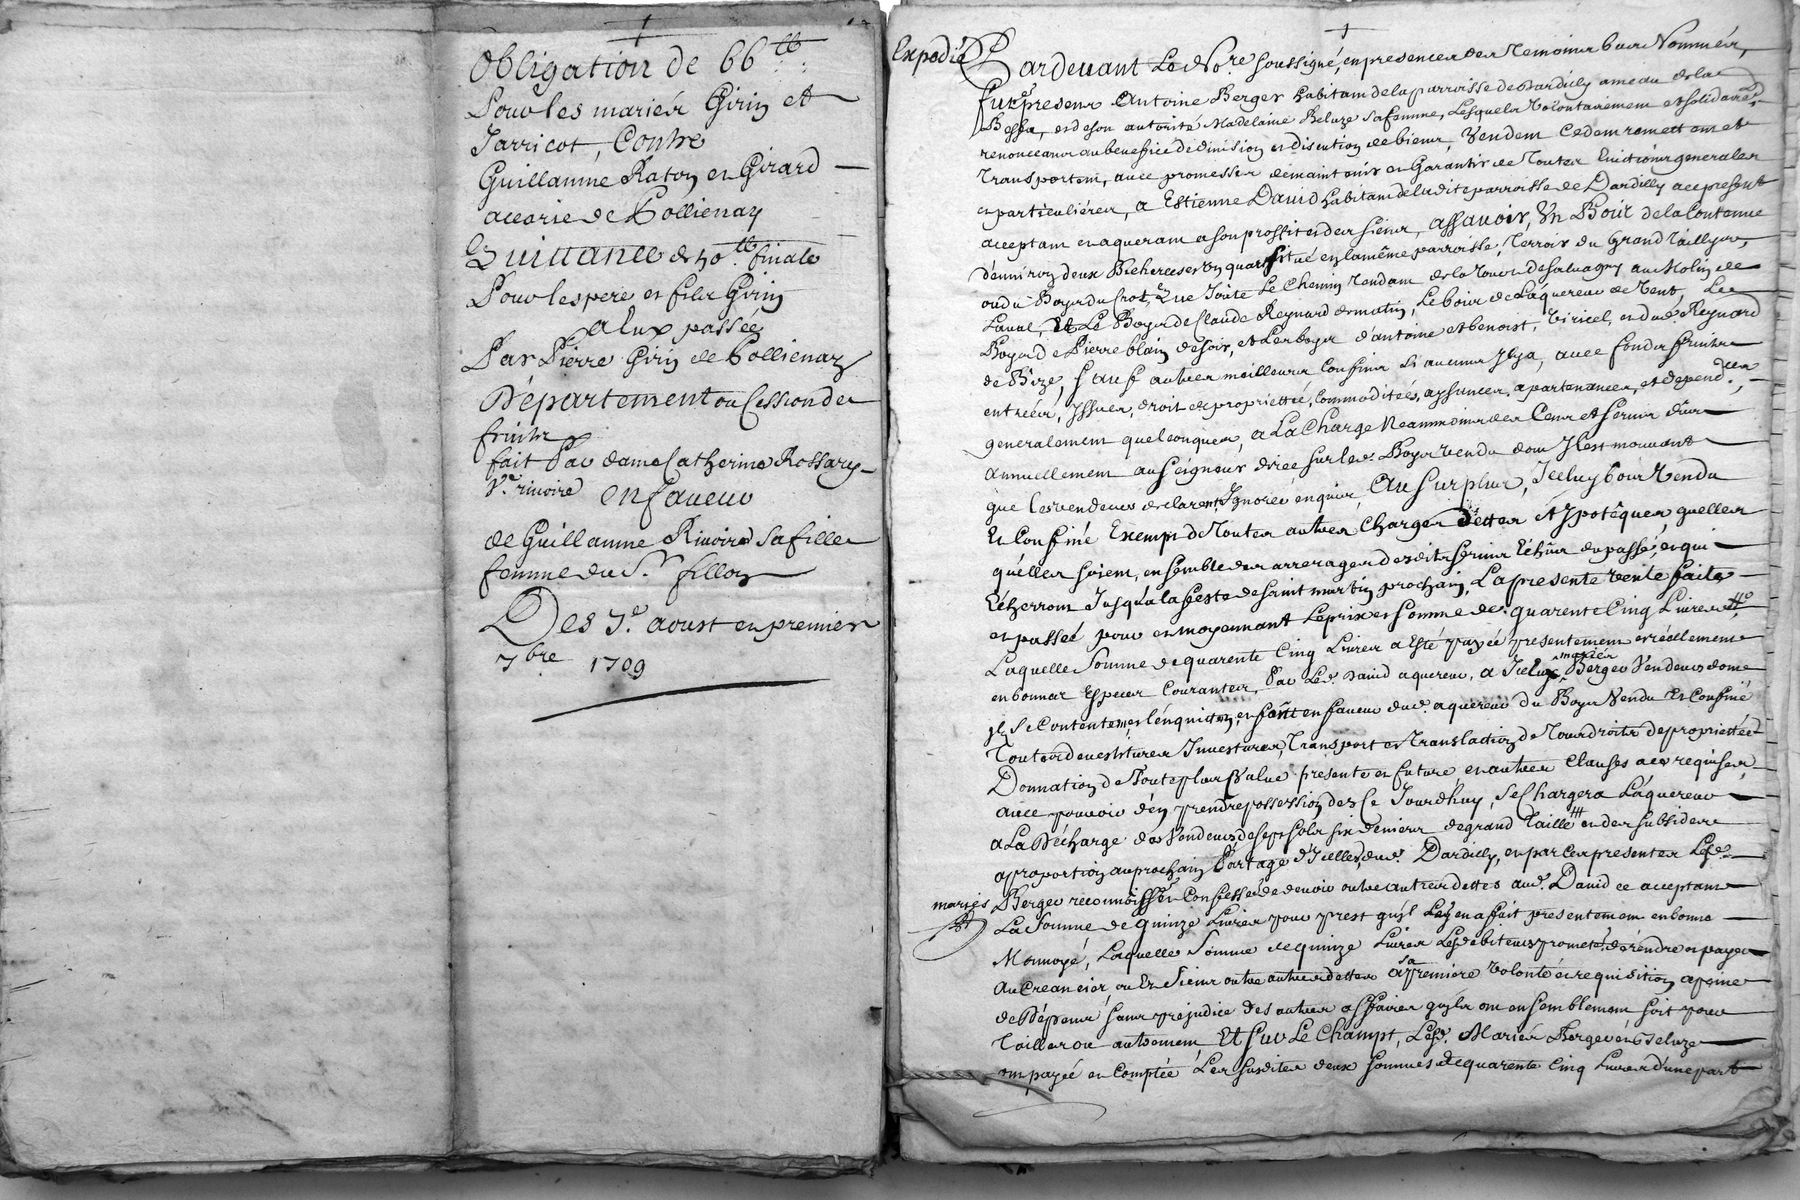 Obligation de 66 ₶
Pour les mariés Girin et
Jarricot, Contre
Guillaume Raton et Girard
accarie de Pollienay
Quittance de 50 ₶ finale
Pour les pere et fils Girin
a Eux passée
Par Pierre Girin de Pollienay
Département ou Cession des
fruits
fait Par dame Catherine Rossary
Ve rivoire en faveur
de Guillaume Rivoire sa fille
femme du Sr fillon
Des 7e aoust et premier
7bre 1709
Expedié
Pardevant Le Nore soussigné, en presences des Temoins bas Nommés,
furt presens Antoine Berger habitant de la parroisse de Dardilly ameau de la
Bessa, et de son autorité Madelaine Beluze sa femme, Lesquels Volontairement et solidairet
renonceans au benefice de division et discution de biens, Vendent Cedent remettent et
Transportent, avec promesses de maintenir et Garantir de Toutes Evictions generales
et particulières, a Estienne David habitant de la dite parroisse de Dardilly ace present
acceptant et aquerant a son proffit et des siens, assavoir, Un Bois de la Contenue
d'environ deux Bicherees et Un quart situé en la même parroisse, Terroir du Grand Taillys,
ou du Boys du Crot, que Joute Le Chemin Tendant de la Tour de Salvagny au Molin de
Laval, Et Le Boys de Claude Reynard de matin, Le bois de L'aquereur de Vent, Le
Boys de Pierre blain de soir, et Les boys d'antoine et benoist Viricel, et dud. Reynard
de Bize, sauf autres meilleurs Confins si aucuns Jl y a, avec fonds fruits
entrées, Jssues, droit de proprietté, Commoditées, aysances, apartenances, et dependces
generalement quelconques, a La Charge Neanmoins des Cens et servis dûs
annuellement au seigneur direc sur led. Boys vendu dont Jl est mouvant
que les vendeurs declarent Jgnorer enquis, Au surplus, Jceluy bois Vendu
Et Confiné Exempt de Toutes autres Charges dettes et Ypotêques quelles
qu'elles soient, ensemble des arrerages desdits servis Echûs du passé, et qui
Echerront Jusqu'a la feste de saint martin prochain, La presente vente faite
et passée pour et moyennant Le prix et somme de quarente Cinq Livres
Laquelle Somme de quarente Cinq Livres a Esté payée presentement et réellement
en bonnes Especes Courantes, Par Led. David aquereur, a Jceux mariés Berger Vendeurs dont
jls se Contentent, et l'en quittent, en faveur dud. aquereur du Boys Vendu Et Confiné
Toutes devestitures Jnvestures, Transport et Translation de Tous droits de propriettée
Donnation de Toute plus Value presente et future, et autres Clauses ace requises,
avec pouvoir d'en prendre possession des Ce Jourdhuy, se Chargera L'aquereur
a La Décharge des Vendeurs de sept sols six deniers de grand Taille et des subsides
a proportion au prochain Partage d'Jcelles, dud. Dardilly, et par Ces presentes Lesd.
mariés Berger reconnoissent et Confessent de devoir outre autres dettes aud. David ce acceptant
La Somme de quinze Livres pour prest qu'jl Leur en a fait presentement en bonne
Monnoyé, Laquelle Somme de quinze Livres Lesd. debiteurs promettent de rendre et payer
Au Creancier, ou Es Siens outre autres dettes a sa premiere Volonté et requisition apeine
de Dépens sans prejudice des autres affaires qu'jls ont ensemblement soit pour
Tailles ou autrement, Et sur Le Champt, Lesd. Mariés Berger et Beluze
ont payée et Comptée Les susdites deux sommes de quarente Cinq Livres d'une part